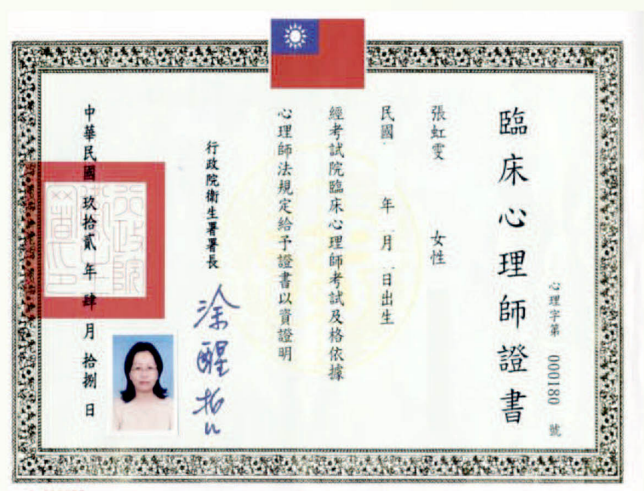 臨床心理師證書
心理字第 000180 號
張虹雯 女性
民國 年 月 日出生
經考試院臨床心理師考試及格依據
心理師法規定給予證書以資證明
行政院衛生署署長
涂醒哲
中華民國 玖拾貳 年 肆 月 拾捌 日